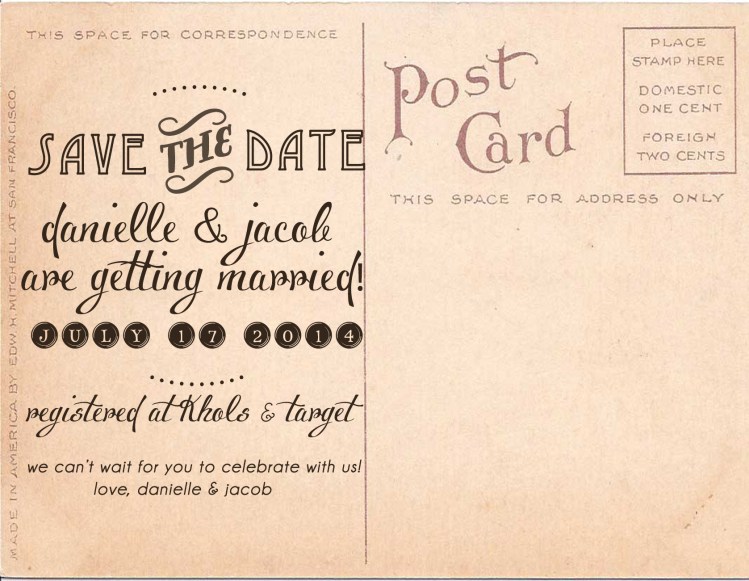 THIS SPACE FOR CORRESPONDENCE
SAVE THE DATE
danielle & jacob
are getting married!
JULY 17 2014
registered at Khols & target
we can't wait for you to celebrate with us!
love, danielle & jacob
MADE IN AMERICA BY EDW. H. MITCHELL AT SAN FRANCISCO.
Post
Card
PLACE
STAMP HERE
DOMESTIC
ONE CENT
FOREIGN
TWO CENTS
THIS SPACE FOR ADDRESS ONLY